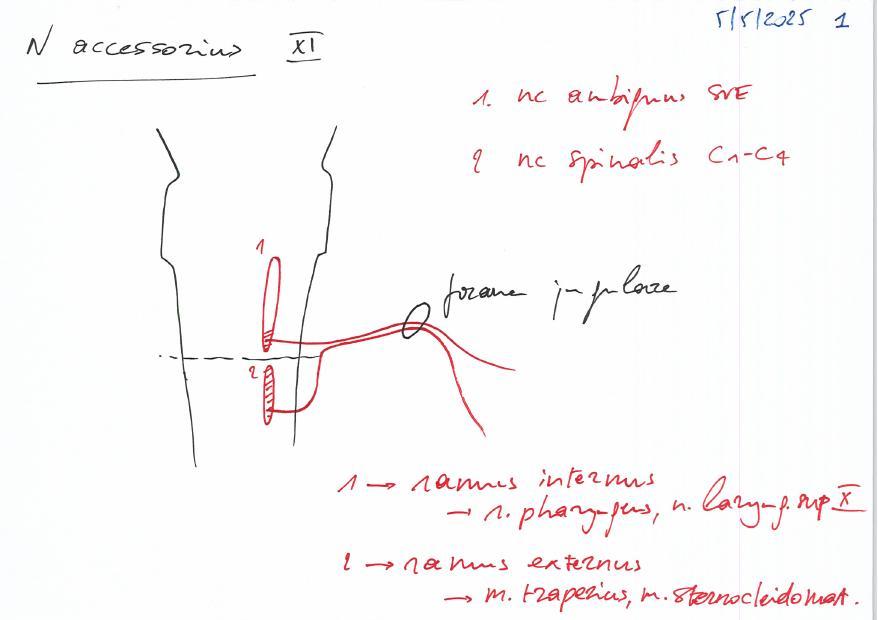 5/5/2025 1
N accessorius XI
1. nc ambiguus SVE
2 nc spinalis C1-C4
1
foramen jugulare
2
1 → ramus internus
→ r. pharyngeus, n. laryng. sup X
2 → ramus externus
→ m. trapezius, m. sternocleidomast.